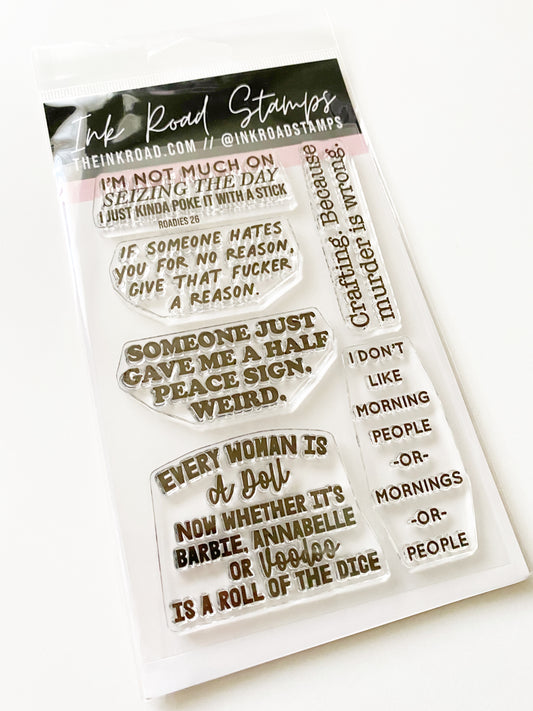 Ink Road Stamps
THEINKROAD.COM // @INKROADSTAMPS
I'M NOT MUCH ON
SEIZING THE DAY
I JUST KINDA POKE IT WITH A STICK
ROADIES 26
IF SOMEONE HATES
YOU FOR NO REASON,
GIVE THAT FUCKER
A REASON.
Crafting. Because
murder is wrong.
SOMEONE JUST
GAVE ME A HALF
PEACE SIGN.
WEIRD.
I DON'T
LIKE
MORNING
PEOPLE
-OR-
MORNINGS
-OR-
PEOPLE
EVERY WOMAN IS
A Doll
NOW WHETHER IT'S
BARBIE, ANNABELLE
OR Voodoo
IS A ROLL OF THE DICE